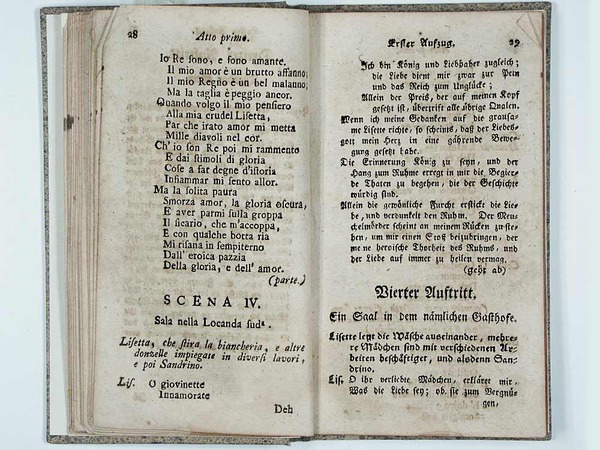 28 Atto primo.
Io Re sono, e sono amante.
Il mio amor è un brutto affanno;
Il mio Regno è un bel malanno;
Ma la taglia è peggio ancor.
Quando volgo il mio pensiero
Alla mia crudel Lisetta,
Par che irato amor mi metta
Mille diavoli nel cor.
Ch' io son Re poi mi rammento
E dai stimoli di gloria
Cose a far degne d'istoria
Infiammar mi sento allor.
Ma la solita paura
Smorza amor, la gloria oscura,
E aver parmi sulla groppa
Il sicario, che m'accoppa,
E con qualche botta ria
Mi risana in sempiterno
Dall' eroica pazzia
Della gloria, e dell' amor.
(parte.)
SCENA IV.
Sala nella Locanda sud.ª
Lisetta, che stira la biancheria, e altre
donzelle impiegate in diversi lavori,
e poi Sandrino.
Lis. O giovinette
Innamorate
Deh
Erster Aufzug. 29
Ich bin König und Liebhaber zugleich;
die Liebe dient mir zwar zur Pein
und das Reich zum Unglücke;
Allein der Preis, der auf meinen Kopf
gesetzt ist, übertrift alle übrige Qualen.
Wenn ich meine Gedanken auf die grausa-
me Lisette richte, so scheints, daß der Liebes-
gott mein Herz in eine gährende Bewe-
gung gesetzt habe.
Die Erinnerung König zu seyn, und der
Hang zum Ruhme erregt in mir die Begier-
de Thaten zu begehen, die der Geschichte
würdig sind.
Allein die gewönliche Furcht erstickt die Lie-
be, und verdunkelt den Ruhm. Der Meu-
chelmörder scheint an meinem Rücken zu ste-
hen, um mir einen Stoß beizubringen, der
meine heroische Thorheit des Ruhms, und
der Liebe auf immer zu heilen vermag.
(geht ab)
Vierter Auftritt.
Ein Saal in dem nämlichen Gasthofe.
Lisette legt die Wäsche auseinander, mehre-
re Mädchen sind mit verschiedenen Ar-
beiten beschäftiget, und alsdenn San-
drino.
Lis. O ihr verliebte Mädchen, erkläret mir,
Was die Liebe sey; ob sie zum Vergnü-
gen,